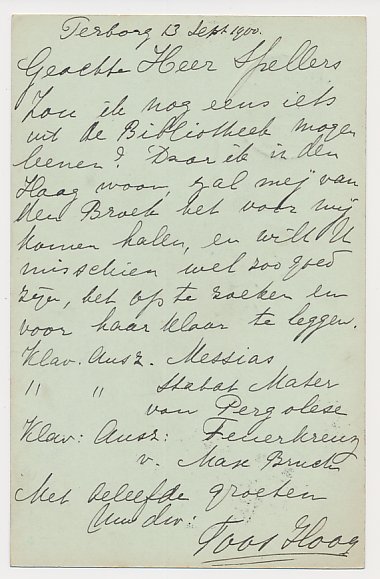 Terborg 13 Sept 1900.
Geachte Heer Spellers
Zou ik nog eens iets
uit de Bibliotheek mogen
leenen? Daar ik in den
Haag woon, zal mej van
den Broek het voor mij
komen halen, en wilt U
misschien wel zoo goed
zijn, het op te zoeken en
voor haar klaar te leggen.
Klav. Ausz. Messias
" " Stabat Mater
van Pergolese
Klav: Ausz: Feuerkreuz
v. Max Bruch
Met beleefde groeten
Uw dw:
Toos Hoog